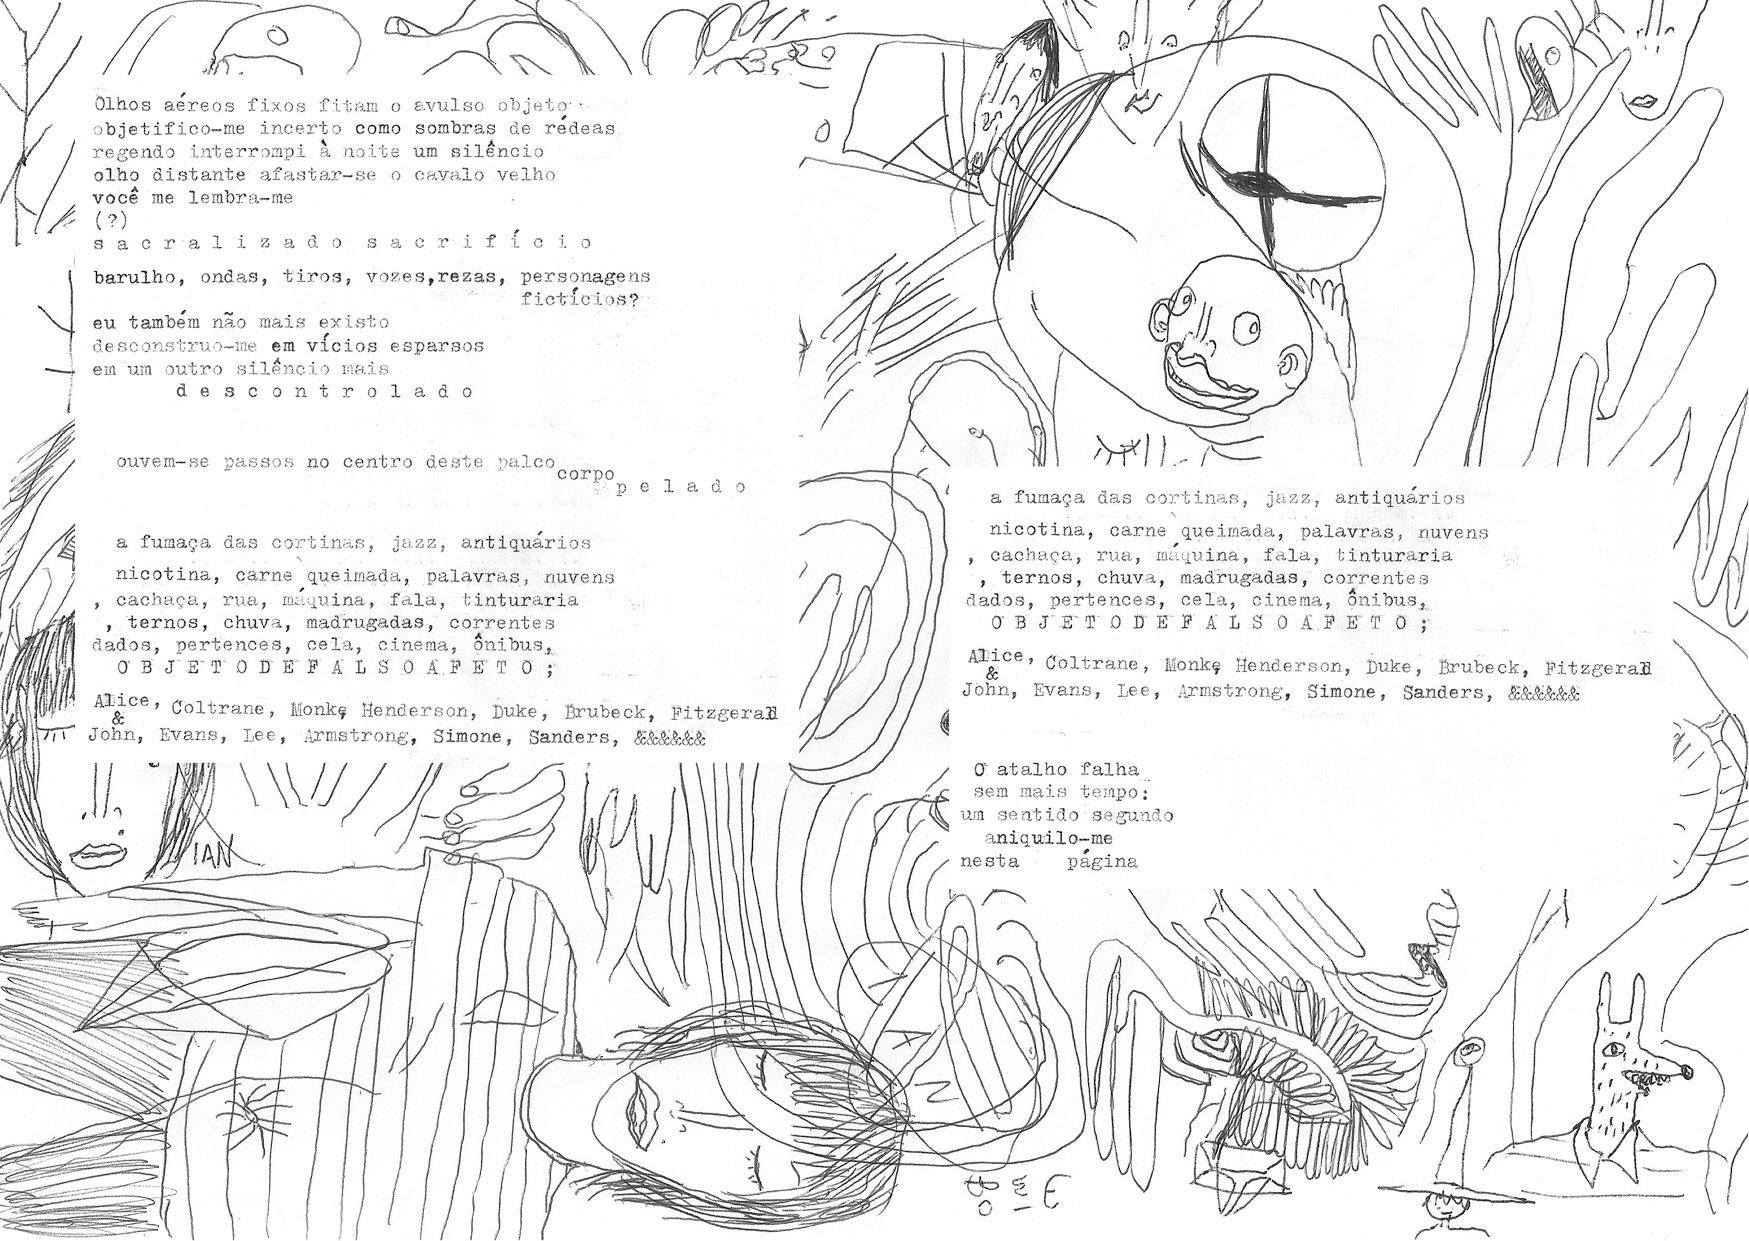 Olhos aéreos fixos fitam o avulso objeto
objetifico-me incerto como sombras de rédeas
regendo interrompi à noite um silêncio
olho distante afastar-se o cavalo velho
você me lembra-me
(?)
s a c r a l i z a d o  s a c r i f í c i o
barulho, ondas, tiros, vozes,rezas, personagens
fictícios?
eu também não mais existo
desconstruo-me em vícios esparsos
em um outro silêncio mais
d e s c o n t r o l a d o
ouvem-se passos no centro deste palco
corpo
p e l a d o
a fumaça das cortinas, jazz, antiquários
nicotina, carne queimada, palavras, nuvens
, cachaça, rua, máquina, fala, tinturaria
, ternos, chuva, madrugadas, correntes
dados, pertences, cela, cinema, ônibus,
O B J E T O D E F A L S O A F E T O ;
Alice, Coltrane, Monk, Henderson, Duke, Brubeck, Fitzgerald
&
John, Evans, Lee, Armstrong, Simone, Sanders, &&&&&&
IAN
a fumaça das cortinas, jazz, antiquários
nicotina, carne queimada, palavras, nuvens
, cachaça, rua, máquina, fala, tinturaria
, ternos, chuva, madrugadas, correntes
dados, pertences, cela, cinema, ônibus,
O B J E T O D E F A L S O A F E T O ;
Alice, Coltrane, Monk, Henderson, Duke, Brubeck, Fitzgerald
&
John, Evans, Lee, Armstrong, Simone, Sanders, &&&&&&
O atalho falha
sem mais tempo:
um sentido segundo
aniquilo-me
nesta página